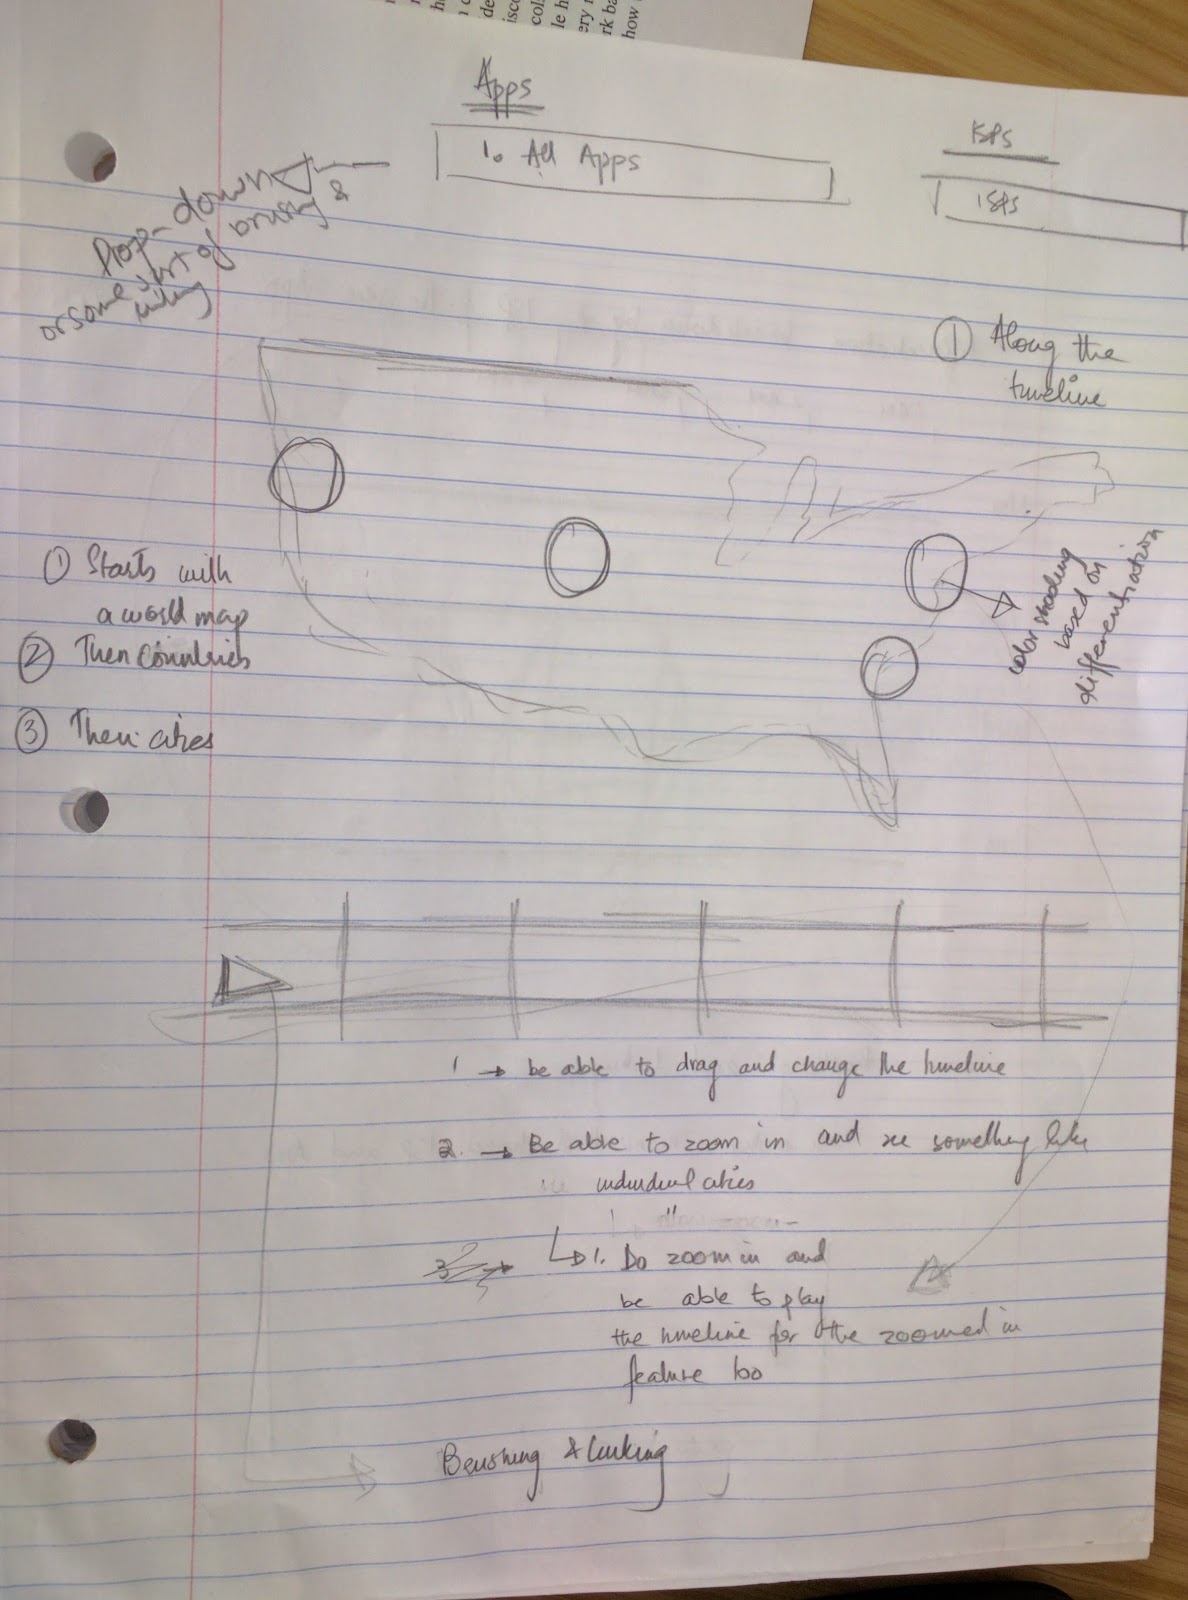 Apps
1. All Apps
ISPS
ISPS
Drop-down
or some sort of brushing &
linking
① Along the
timeline
① Starts with
a world map
② Then Countries
③ Then cities
color shading
based on
differentiation
1 → be able to drag and change the timeline
2. → Be able to zoom in and see something like
individual cities
3
↳ 1. Do zoom in and
be able to play
the timeline for the zoomed in
feature too
Brushing & Linking